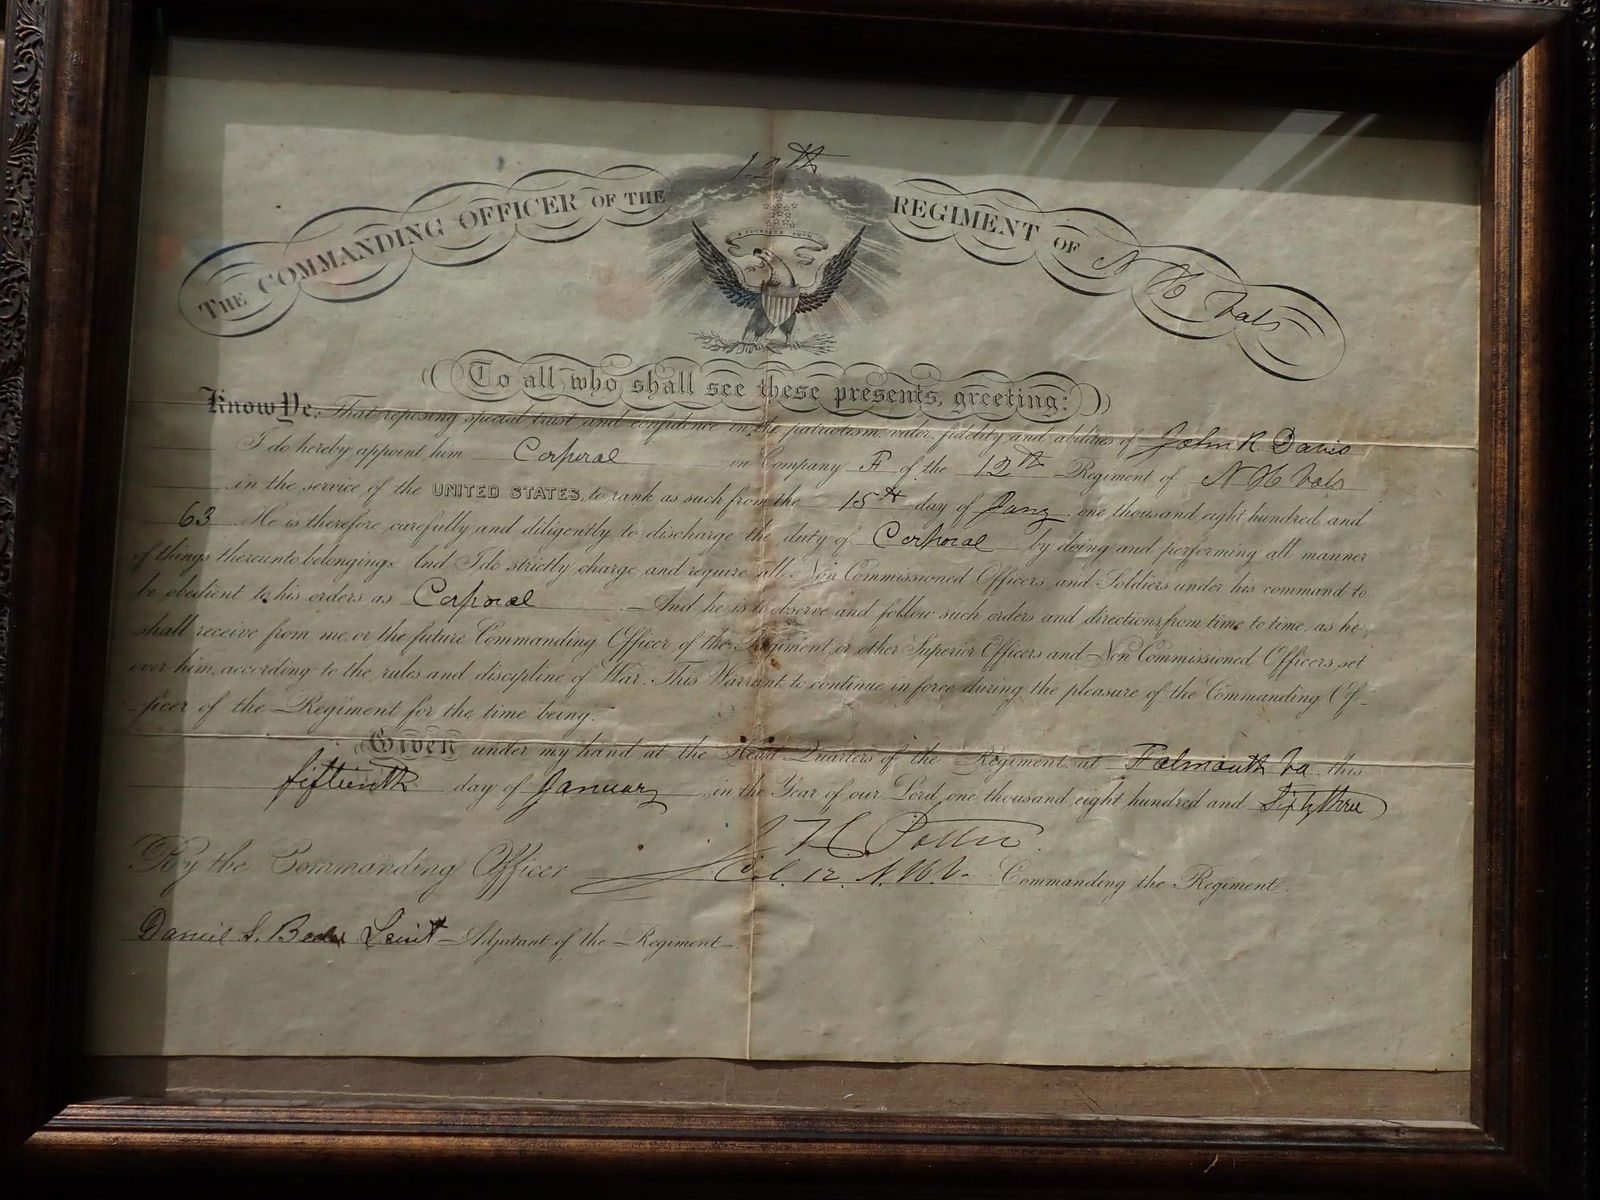 12th
THE COMMANDING OFFICER OF THE REGIMENT OF N H Vols
E PLURIBUS UNUM
To all who shall see these presents, greeting:
Know Ye, That reposing special trust and confidence in the patriotism, valor, fidelity and abilities of John R Davis
I do hereby appoint him Corporal in Company F of the 12th Regiment of N H Vols
in the service of the UNITED STATES, to rank as such from the 15th day of Jany one thousand eight hundred and
63 He is therefore carefully and diligently to discharge the duty of Corporal by doing and performing all manner
of things thereunto belonging. And I do strictly charge and require all Non Commissioned Officers and Soldiers under his command to
be obedient to his orders as Corporal And he is to observe and follow such orders and directions, from time to time, as he
shall receive from me, or the future Commanding Officer of the Regiment, or other Superior Officers and Non Commissioned Officers set
over him, according to the rules and discipline of War. This Warrant to continue in force during the pleasure of the Commanding Of-
ficer of the Regiment for the time being.
Given under my hand at the Head Quarters of the Regiment at Falmouth Va this
fifteenth day of January in the Year of our Lord, one thousand eight hundred and Sixty three
J H. Potter
By the Commanding Officer Col. 12. N.H.V. Commanding the Regiment.
Daniel S. Leiut Adjutant of the Regiment